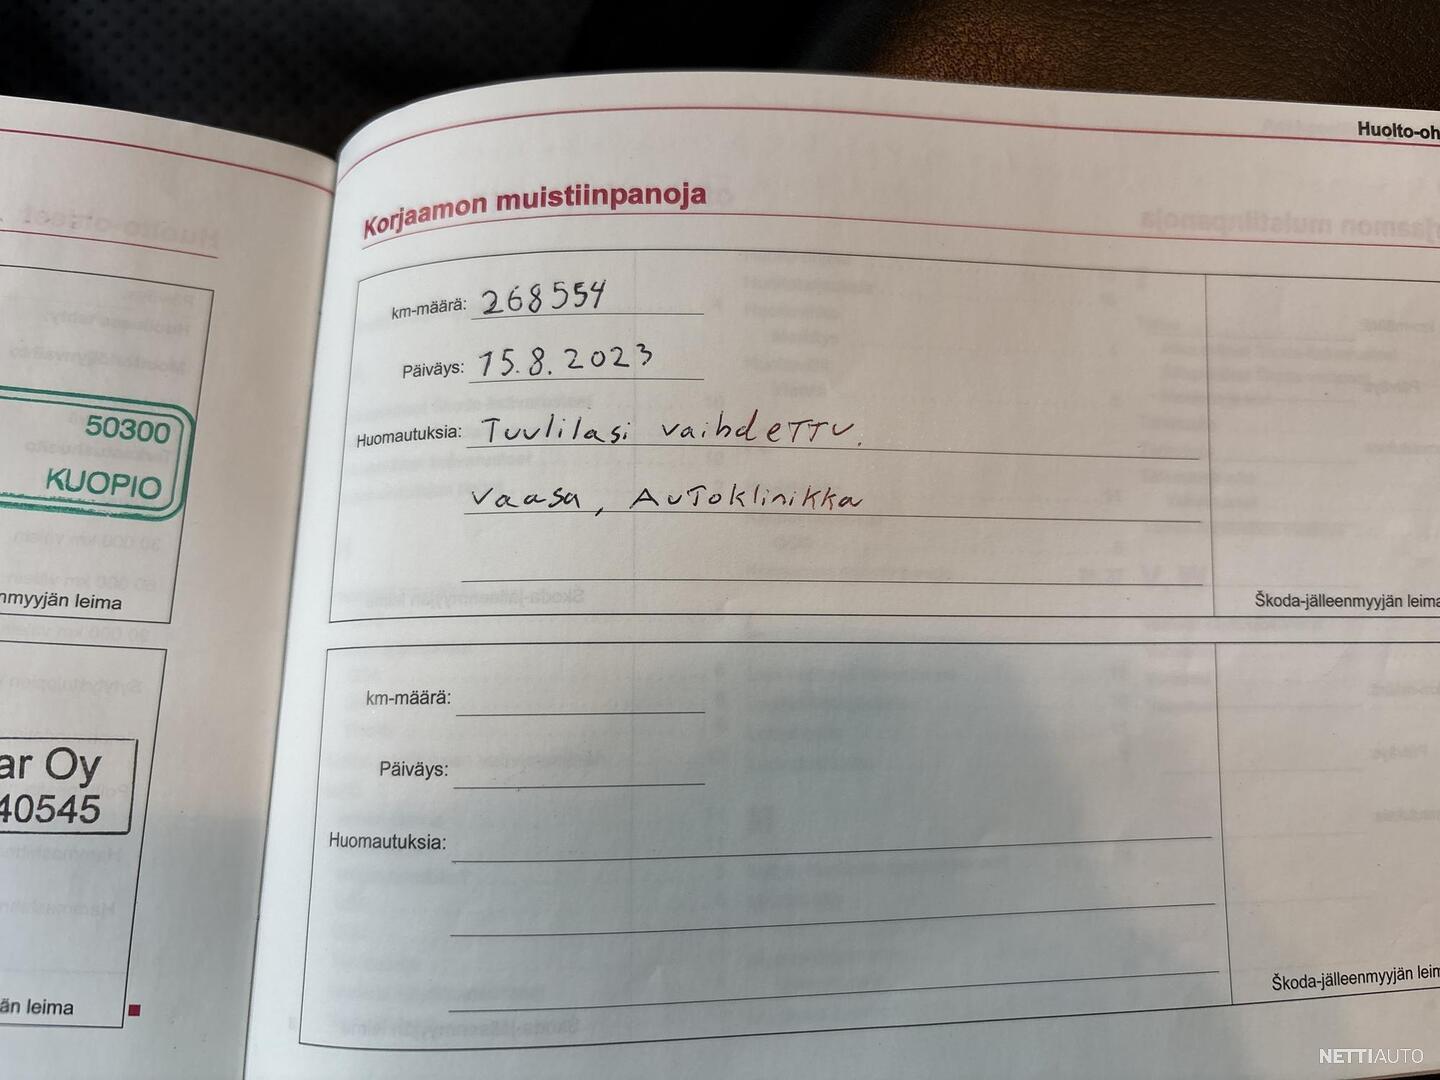 50300
KUOPIO
nmyyjän leima
ar Oy
40545
än leima
Huolto-oh
Korjaamon muistiinpanoja
km-määrä: 268554
Päiväys: 15.8.2023
Huomautuksia: Tuulilasi vaihdettu.
Vaasa, Autoklinikka
Škoda-jälleenmyyjän leima
km-määrä:
Päiväys:
Huomautuksia:
Škoda-jälleenmyyjän leim
NETTIAUTO